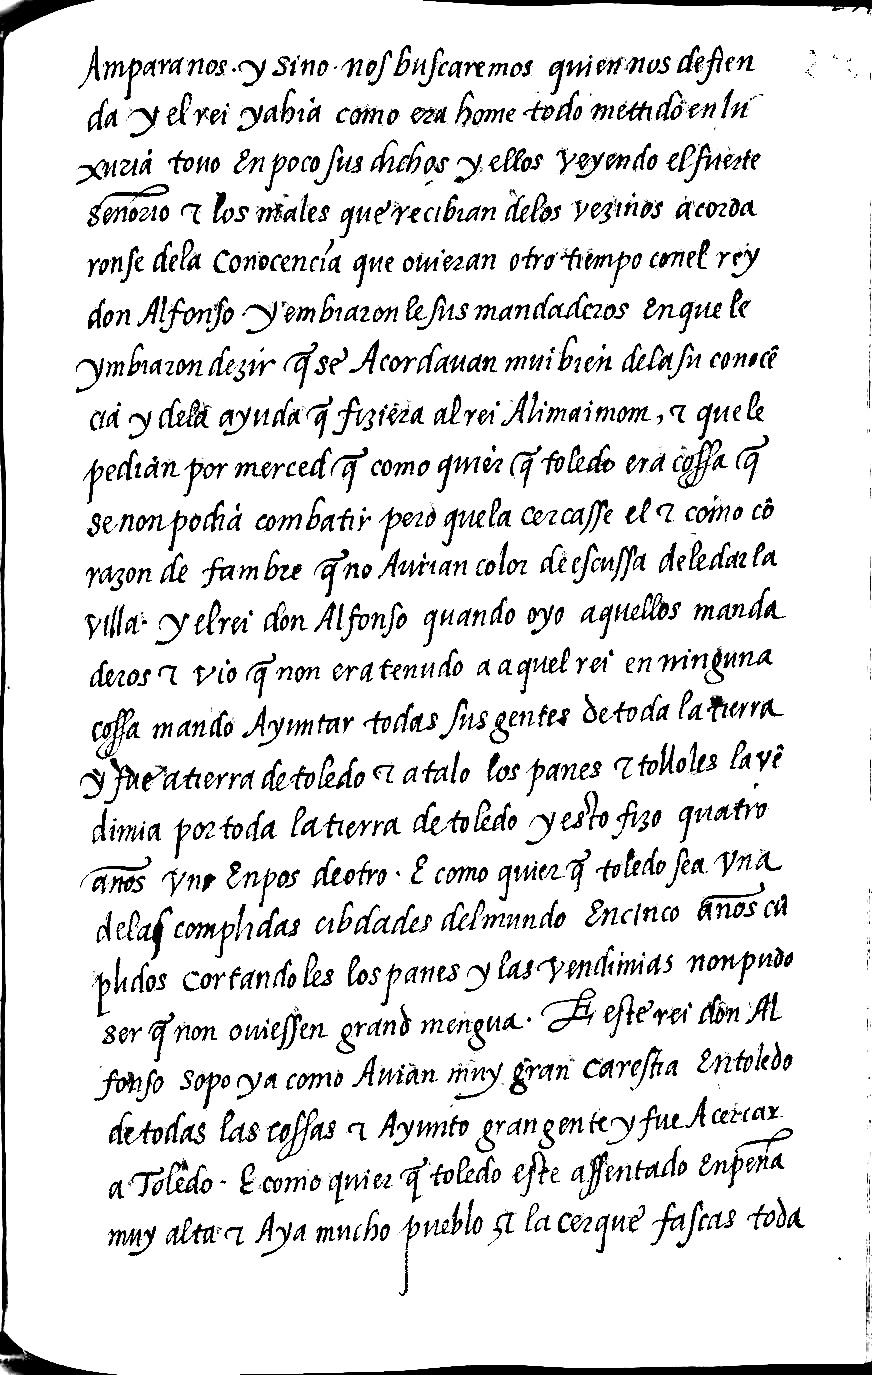 Amparanos. y sino. nos buscaremos quien nos defien
da y el rei yahia como era home todo mettido en lu
xuria touo En poco sus dichos y ellos veyendo el fuerte
señorio τ los males que recibian delos vezinos acorda
ronse dela Conocencia que ouieran otro tiempo conel rey
don Alfonso y embiaron le sus mandaderos En que le
ymbiaron dezir q̃ se Acordauan mui bien dela su conocẽ
cia y dela ayuda q̃ fiziera al rei Alimaimom, τ que le
pedian por merced q̃ como quier q̃ toledo era cossa q̃
se non podia combatir pero quela cercasse el τ como cõ
razon de fambre q̃ no Aurian color de escussa dele dar la
villa. y el rei don Alfonso quando oyo aquellos manda
deros τ vio q̃ non era tenudo a aquel rei en ninguna
cossa mando Ayuntar todas sus gentes de toda la tierra
y fue a tierra de toledo τ atalo los panes τ tolloles la vẽ
dimia por toda la tierra de toledo y esto fizo quatro
años vno En pos de otro. E como quier q̃ toledo sea vna
delas complidas cibdades del mundo En cinco años cũ
plidos cortandoles los panes y las vendimias non pudo
ser q̃ non ouiessen grand mengua. E este rei don Al
fonso sopo ya como Auian muy gran carestia En toledo
de todas las cossas τ Ayunto gran gente y fue A cercar
a Toledo. E como quier q̃ toledo este assentado En peña
muy alta τ Aya mucho pueblo τ la cerque fascas toda